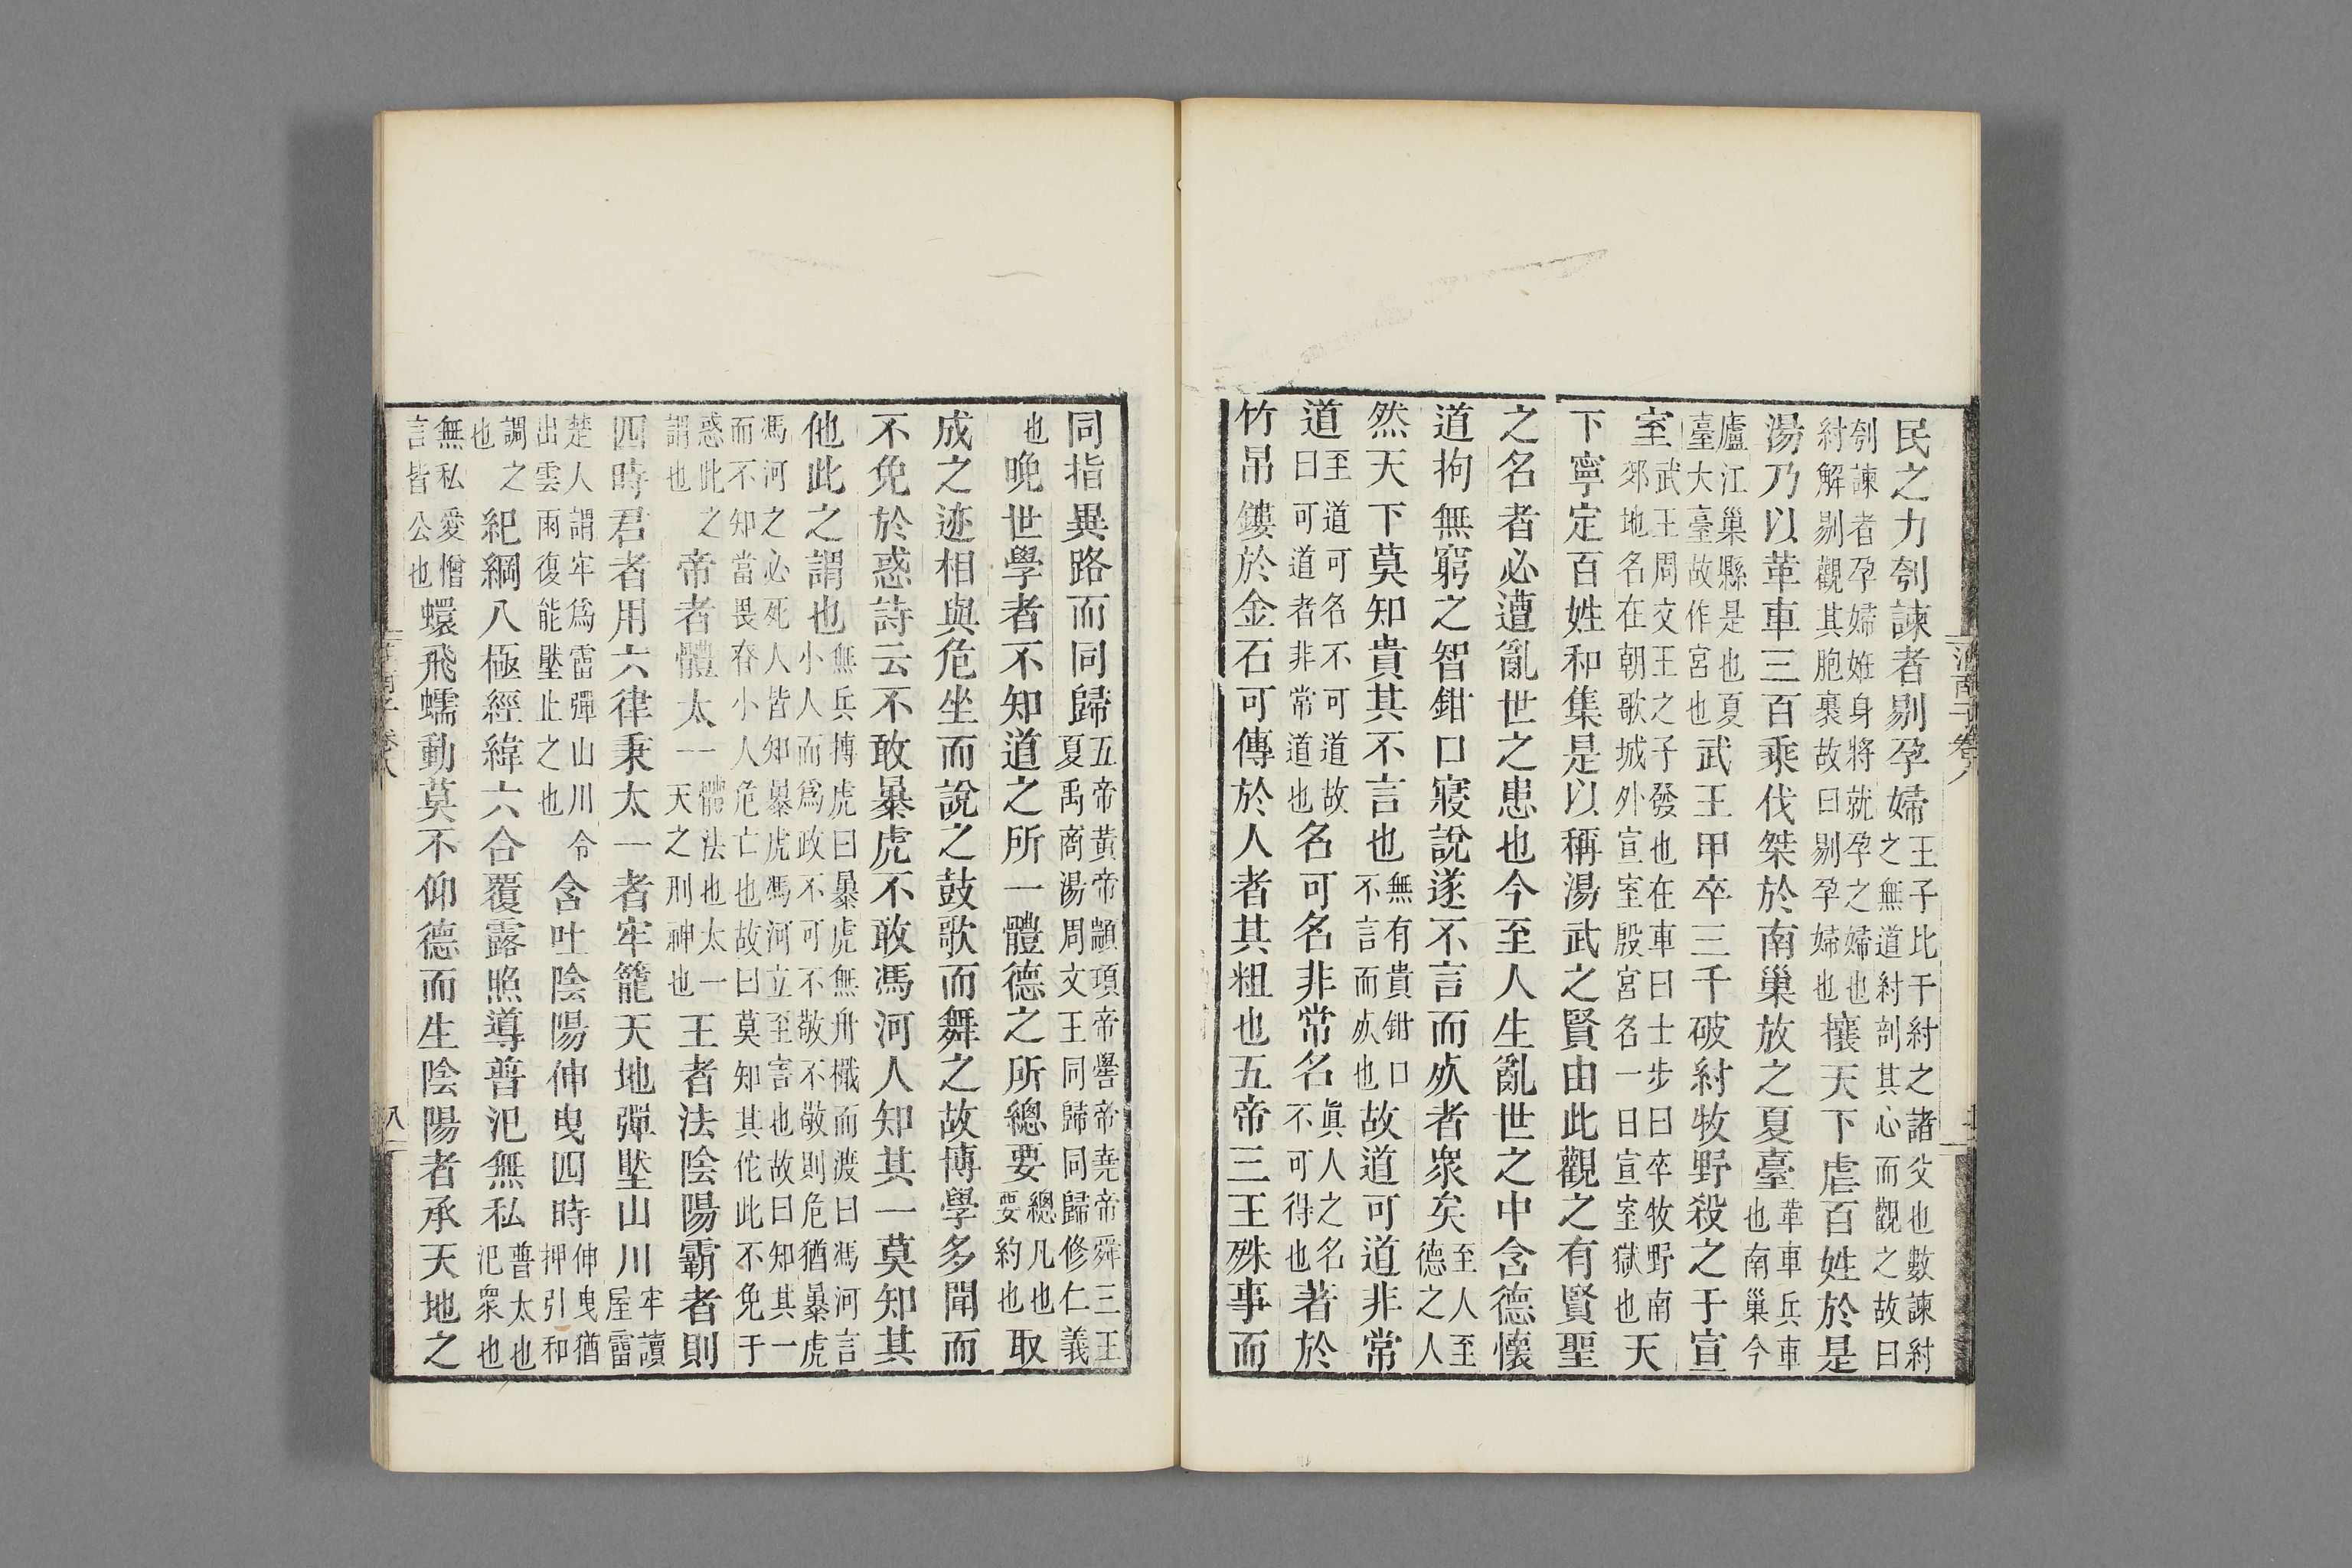 民之力刳諫者剔孕婦王子比干紂之諸父也數諫紂之無道紂剖其心而觀之故曰
刳諫者孕婦姙身將就孕之婦也紂解剔觀其胞裹故曰剔孕婦也攘天下虐百姓於是
湯乃以革車三百乘伐桀於南巢放之夏臺革車兵車也南巢今
廬江巢縣是也夏臺大臺故作宮也武王甲卒三千破紂牧野殺之于宣
室武王周文王之子發也在車曰士步曰卒牧野南郊地名在朝歌城外宣室殷宮名一曰宣室獄也天
下寧定百姓和集是以稱湯武之賢由此觀之有賢聖
之名者必遭亂世之患也今至人生亂世之中含德懷
道拘無窮之智鉗口寢說遂不言而死者衆矣至人至德之人
然天下莫知貴其不言也無有貴鉗口不言而死也故道可道非常
道至道可名不可道故曰可道者非常道也名可名非常名眞人之名不可得也著於
竹帛鏤於金石可傳於人者其粗也五帝三王殊事而
同指異路而同歸五帝黃帝顓頊帝嚳帝堯帝舜三王夏禹商湯周文王同歸同歸修仁義
也晚世學者不知道之所一體德之所總要總凡也要約也取
成之迹相與危坐而說之鼓歌而舞之故博學多聞而
不免於惑詩云不敢暴虎不敢馮河人知其一莫知其
他此之謂也無兵搏虎曰暴虎無舟檝而渡曰馮河言小人而爲政不可不敬不敬則危猶暴虎
馮河之必死人皆知暴虎馮河立至害也故曰知其一而不知當畏眘小人危亡也故曰莫知其佗此不免于
惑此之謂也帝者體太一體法也太一天之刑神也王者法陰陽霸者則
四時君者用六律秉太一者牢籠天地彈壓山川牢讀屋霤
楚人謂牢爲霤彈山川令出雲雨復能壓止之也含吐陰陽伸曳四時伸曳猶押引和
調之也紀綱八極經緯六合覆露照導普氾無私普太也氾衆也
無私愛憎言皆公也蠉飛蠕動莫不仰德而生陰陽者承天地之
八